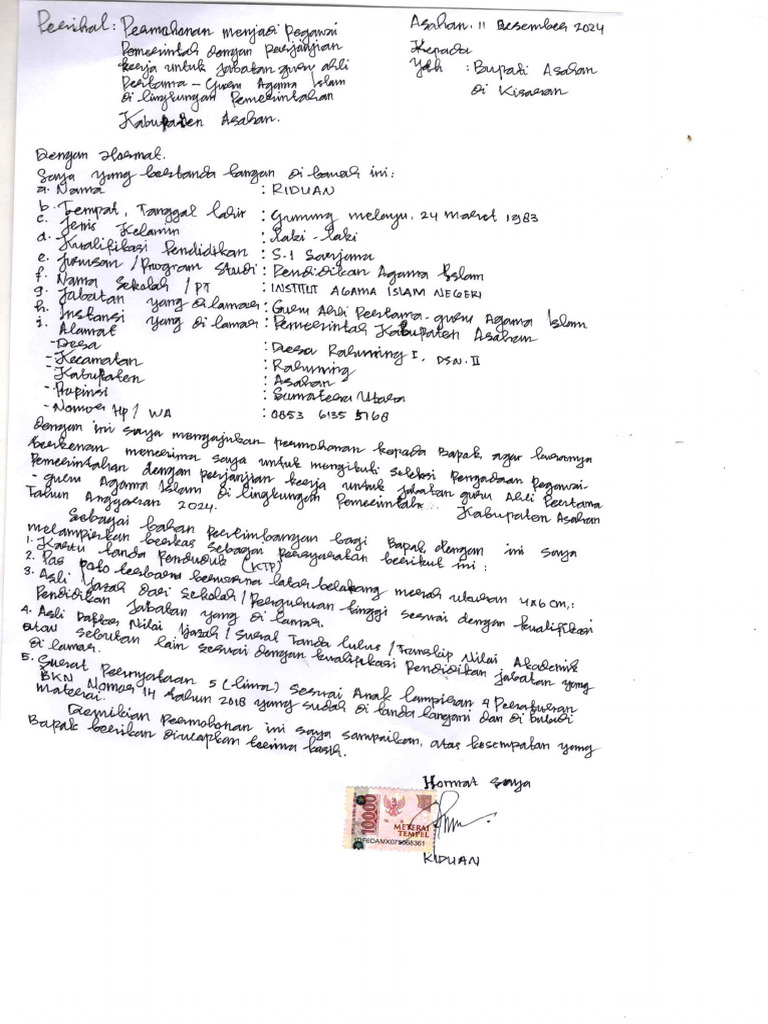 Perihal : Permohonan menjadi Pegawai
Pemerintah dengan perjanjian
kerja untuk jabatan guru ahli
Pertama - Guru Agama Islam
di lingkungan Pemerintahan
Kabupaten Asahan.
Asahan, 11 Desember 2024
Kepada
Yth : Bupati Asahan
di Kisaran
Dengan Hormat.
Saya yang bertanda tangan di bawah ini :
a. Nama : RIDUAN
b. Tempat, Tanggal lahir : Gunung melayu, 24 maret 1983
c. Jenis Kelamin : Laki - laki
d. Kualifikasi Pendidikan : S.1 Sarjana
e. Jurusan / Program Studi : Pendidikan Agama Islam
f. Nama Sekolah / PT : INSTITUT AGAMA ISLAM NEGERI
g. Jabatan yang di lamar : Guru Ahli Pertama - guru Agama Islam
h. Instansi yang di lamar : Pemerintah Kabupaten Asahan
i. Alamat
- Desa : Desa Rahuning I, DSN. II
- Kecamatan : Rahuning
- Kabupaten : Asahan
- Propinsi : Sumatera Utara
- Nomor Hp / WA : 0853 6135 5768
dengan ini saya mengajukan permohonan kepada Bapak, agar kiranya
berkenan menerima saya untuk mengikuti seleksi Pengadaan Pegawai
Pemerintahan dengan perjanjian kerja untuk jabatan guru Ahli Pertama
- guru Agama Islam di lingkungan Pemerintah... Kabupaten Asahan
Tahun Anggaran 2024.
Sebagai bahan Pertimbangan bagi Bapak, dengan ini saya
melampirkan berkas sebagai persyaratan berikut ini :
1. Kartu tanda Penduduk (KTP)
2. Pas poto terbaru berwarna latar belakang merah ukuran 4x6 cm,:
3. Asli Ijazah dari Sekolah / Perguruan tinggi sesuai dengan kualifikasi
Pendidikan Jabatan yang di lamar.
4. Asli Daftar Nilai Ijazah / Surat Tanda lulus / Transkip Nilai Akademik
atau sebutan lain sesuai dengan kualifikasi Pendidikan jabatan yang
di lamar.
5. Surat Pernyataan 5 (lima) sesuai Anak lampiran 4 Peraturan
BKN Nomor 14 tahun 2018 yang sudah di tanda tangani dan di bubuhi
Materai.
Demikian Permohonan ini saya sampaikan, atas kesempatan yang
Bapak berikan diucapkan terima kasih.
Hormat Saya
10000
METERAI
TEMPEL
RIDUAN